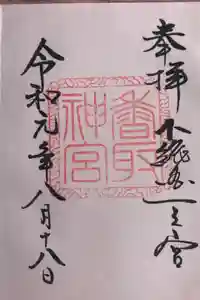 奉拝 下総国一之宮
香取神宮
令和元年八月十八日